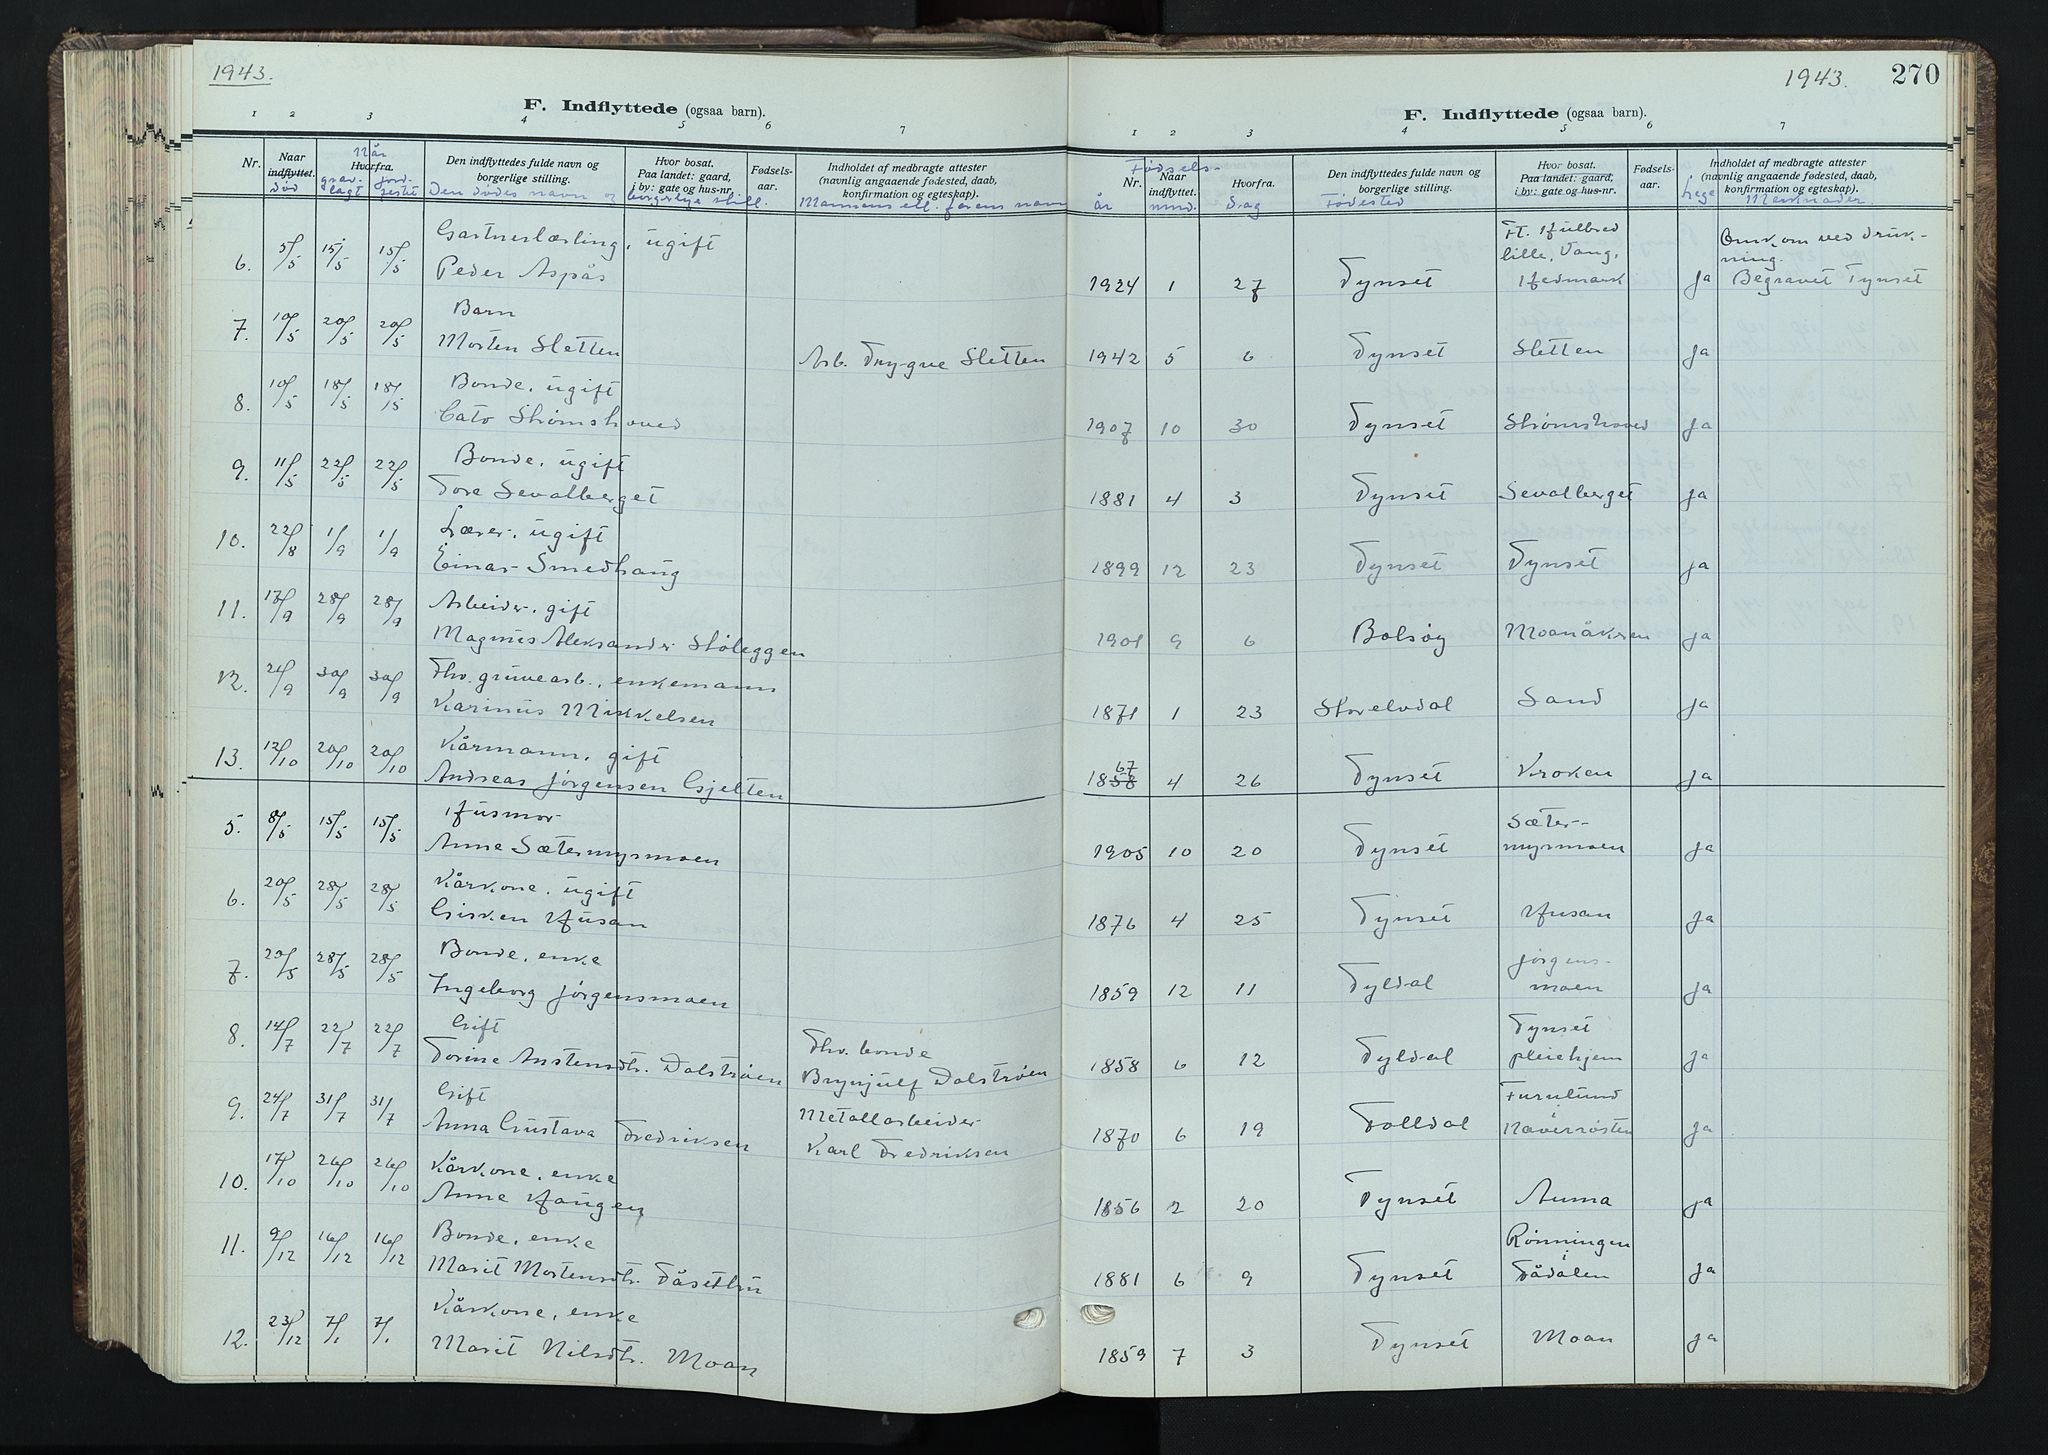 1943.
F. Indflyttede (ogsaa barn).
1 2 3 4 5 6 7
Nr.
Naar indflyttet.
død
Hvorfra.
Når
grav-lagt
jord-festet
Den indflyttedes fulde navn og borgerlige stilling.
Den dødes navn og borgerlige still.
Hvor bosat.
Paa landet: gaard,
i by: gate og hus-nr.
Fødsels-
aar.
Indholdet af medbragte attester
(navnlig angaaende fødested, daab,
konfirmation og egteskap).
Mannens ell. farens navn
6. 5/5 15/5 15/5 Gartnerlærling, ugift
Peder Aspås
7. 10/5 20/5 20/5 Barn
Morten Sletten Arb. Trygve Sletten
8. 10/5 18/5 18/5 Bonde, ugift
Cato Strømshoved
9. 11/5 22/5 22/5 Bonde, ugift
Tore Sevalberget
10. 22/8 1/9 1/9 Lærer, ugift
Einar Smedhaug
11. 17/9 28/9 28/9 Arbeider, gift
Magnus Aleksander Støleggen
12. 24/9 30/9 30/9 Fhv. gruvearb., enkemann
Karinus Mikkelsen
13. 12/10 20/10 20/10 Kårmann, gift
Andreas Jørgensen Gjelten
5. 8/5 15/5 15/5 Husmor
Anne Sætermyrmoen
6. 20/5 28/5 28/5 Kårkone, ugift
Gisken Husan
7. 20/5 28/5 28/5 Bonde, enke
Ingeborg Jørgensmoen
8. 14/7 22/7 22/7 Gift
Torine Austensdtr. Dalstrøen
Fhv. bonde
Brynjulf Dalstrøen
9. 24/7 31/7 31/7 Gift
Anna Gustava Fredriksen
Metallarbeider
Karl Fredriksen
10. 17/10 26/10 26/10 Kårkone, enke
Anne Haugen
11. 9/12 16/12 16/12 Bonde, enke
Marit Mortensdtr. Fåsettrø
12. 23/12 7/1 7/1 Kårkone, enke
Marit Nilsdtr. Moan
1943. 270
F. Indflyttede (ogsaa barn).
1 2 3 4 5 6 7
Fødsels-
Nr.
år
Naar
indflyttet.
mnd.
Hvorfra.
dag
Den indflyttedes fulde navn og
borgerlige stilling.
Fødested
Hvor bosat.
Paa landet: gaard,
i by: gate og hus-nr.
Fødsels-
aar.
Lege
Indholdet af medbragte attester
(navnlig angaaende fødested, daab,
konfirmation og egteskap).
Merknader.
Ft. Hulbred
lille, Vang,
Omkom ved druk-
ning.
1924 1 27 Tynset Hedmark Ja Begravet Tynset
1942 5 6 Tynset Sletten Ja
1907 10 30 Tynset Strømshoved Ja
1881 4 3 Tynset Sevalberget Ja
1899 12 23 Tynset Tynset Ja
1901 9 6 Bolsøy Moanåkeren Ja
1871 1 23 Storelvdal Sand Ja
67
1858 4 26 Tynset Kroken Ja
Sæter-
1905 10 20 Tynset myrmoen Ja
1876 4 25 Tynset Husan Ja
Jørgens-
1859 12 11 Tyldal moen Ja
Tynset
1858 6 12 Tyldal pleiehjem Ja
Furulund
i
1870 6 19 Folldal Naverrosten Ja
1856 2 20 Tynset Auma Ja
Rønningen
i
1881 6 9 Tynset Fådalen Ja
1859 7 3 Tynset Moan Ja